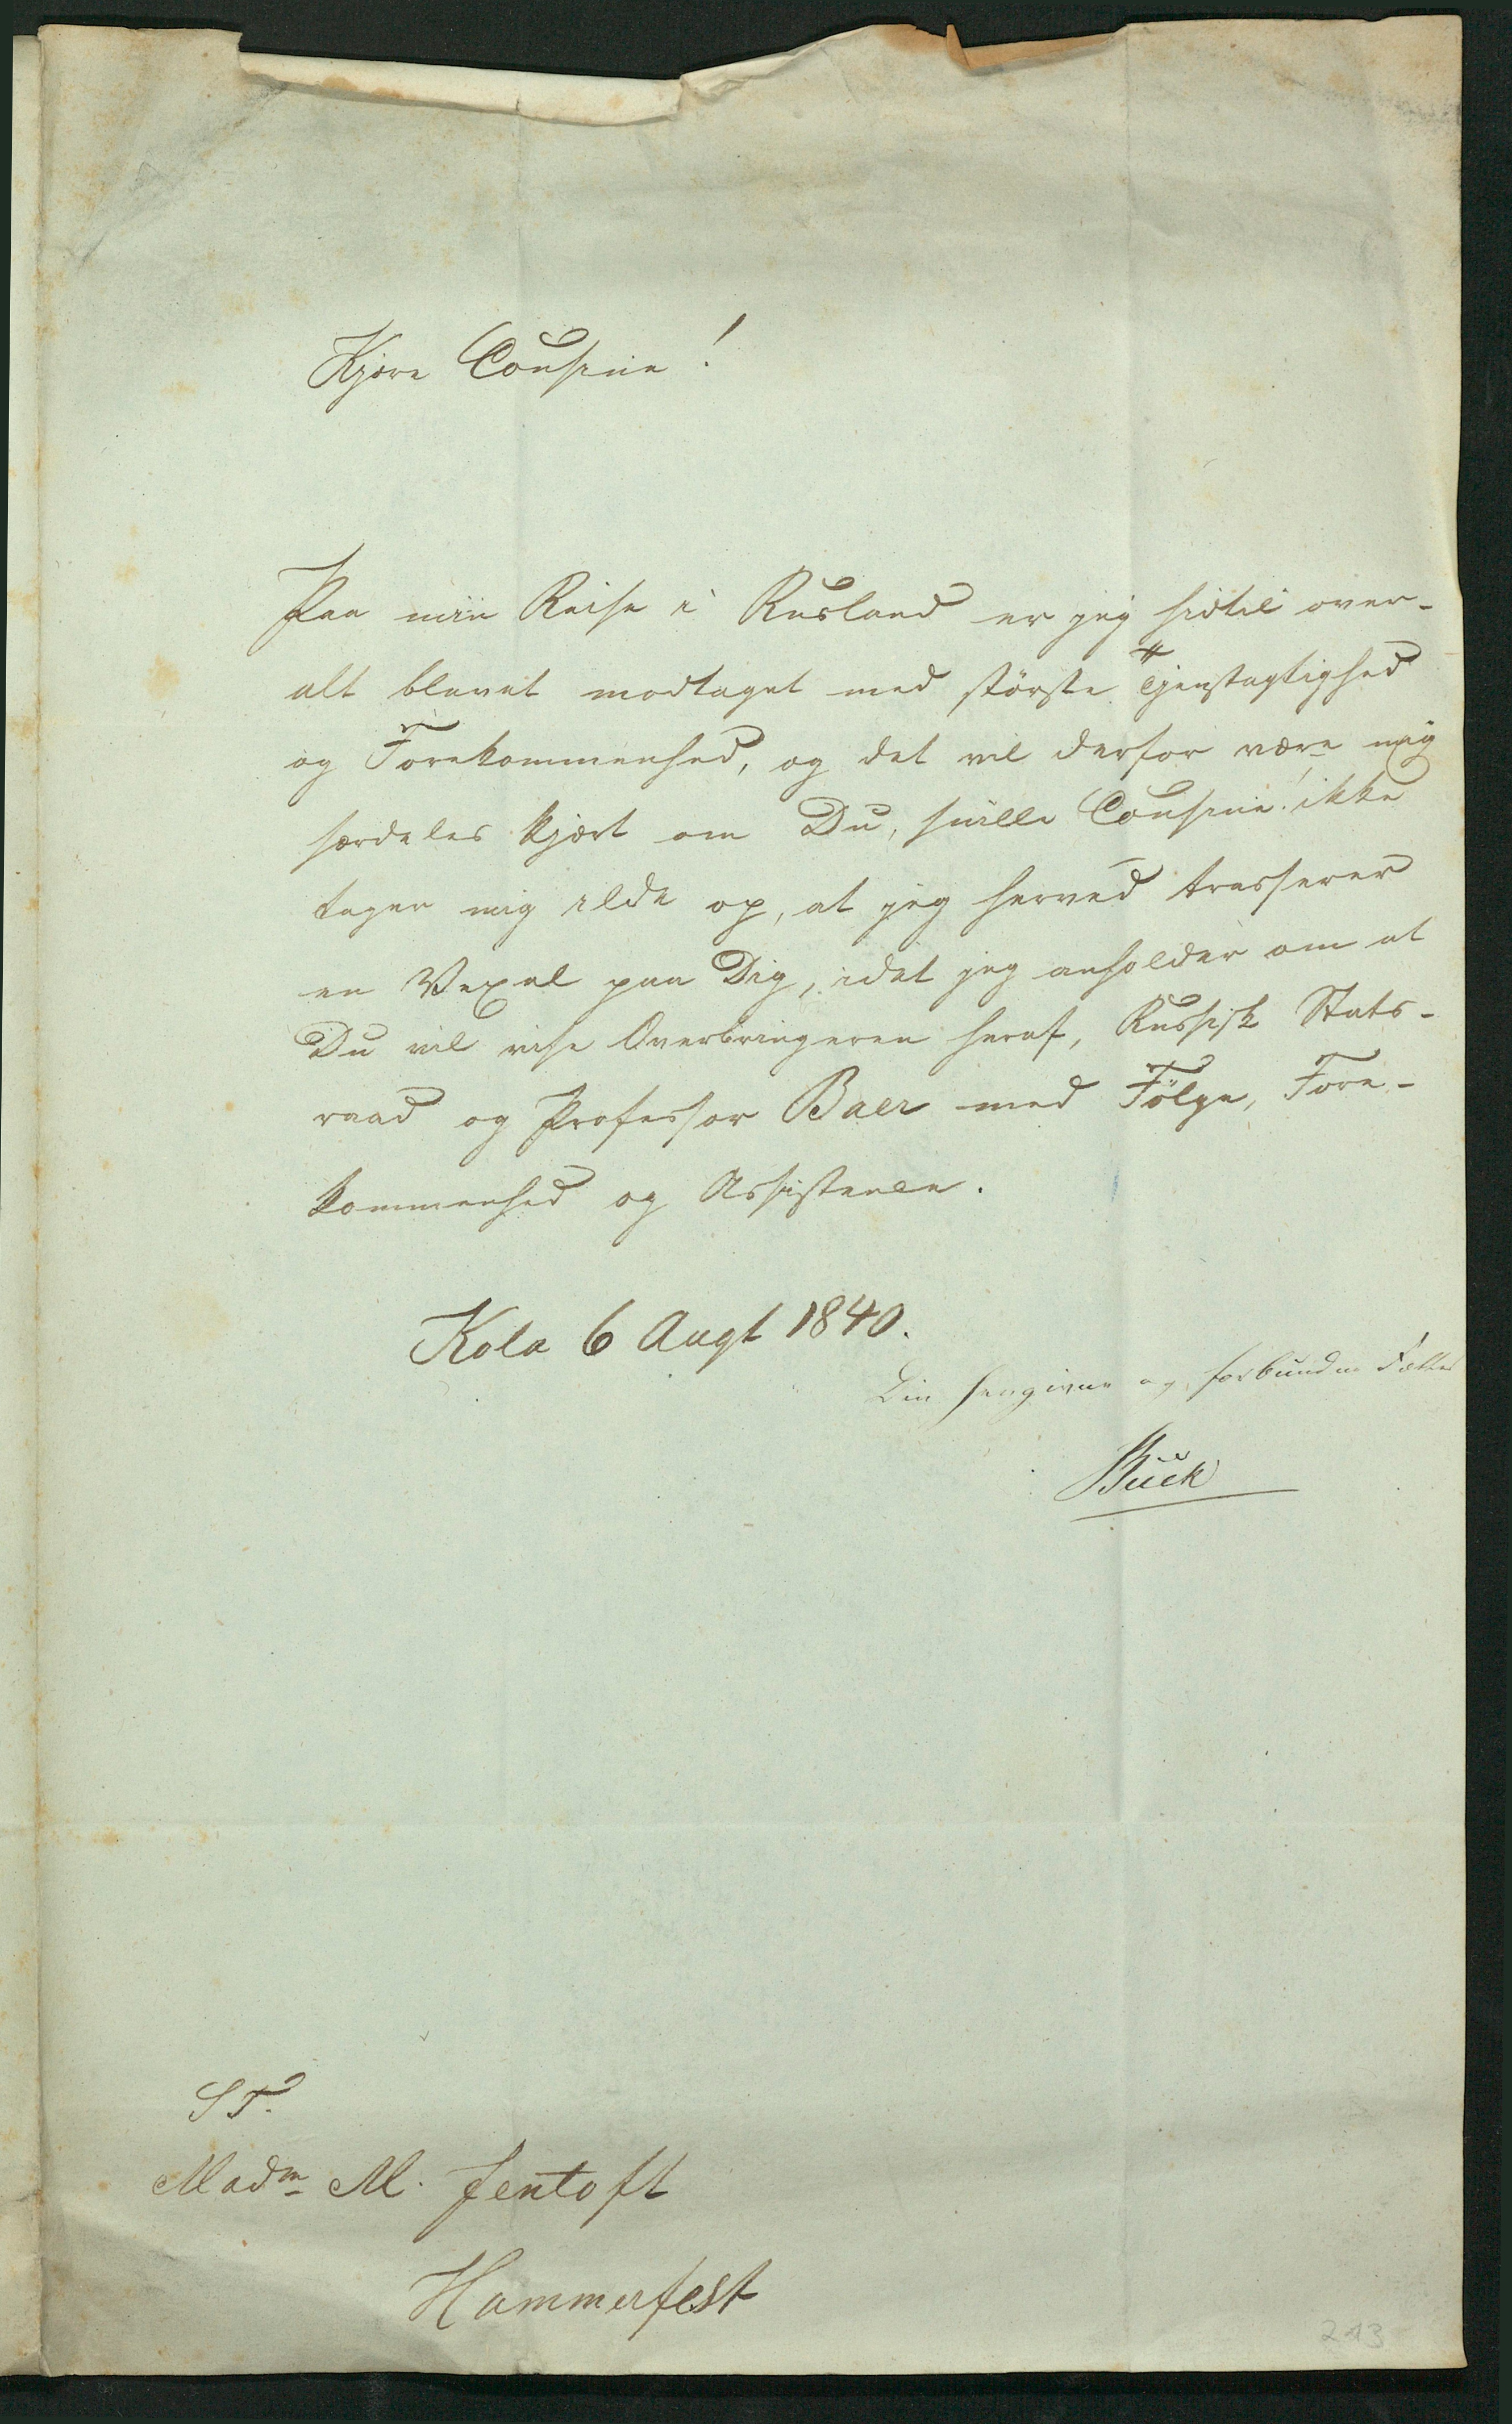 Kjære Cousine!
Paa min Reise i Rusland er jeg hidtil over-
alt blevet modtaget med störste Tjenstagtighed
og Forekommenhed, og det vil derfor være mig
særdeles kjært om Du, snille Cousine! ikke
tager mig ilde op, at jeg herved trasserer
en Vexel paa Dig, idet jeg anholder om at
Du vil vise Overbringeren heraf, Russisk Stats-
raad og Professor Baer med Fölge, Fore-
kommenhed og Assistence.
Kola 6 Augt 1840.
Din hengivne og forbundne Fætter
Buck
S T.
Madm M. Jentoft
Hammerfest
213